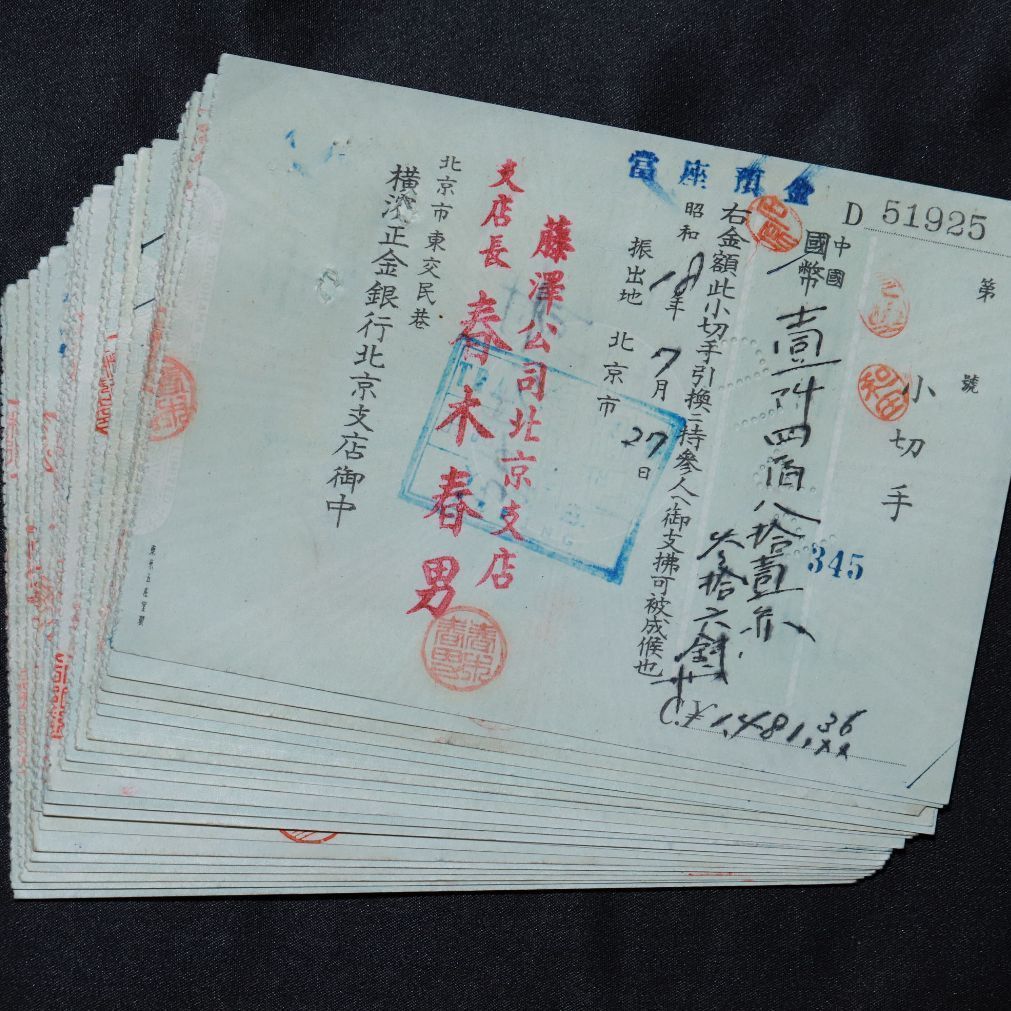 當座預金
D 51925
第 號
小切手
中國
國幣
壹阡四百八拾壹
345
叄拾六錢
1,481,36
右金額此小切手引換ニ持參人ヘ御支拂可被成候也
昭和18年7月27日
振出地 北京市
藤澤公司北京支店
支店長 春木春男
北京市東交民巷
橫濱正金銀行北京支店御中